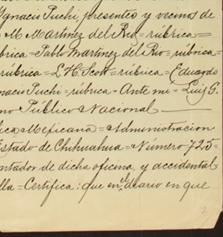 Ignacio Puchi, presentes y vecinos de
M. Martinez del Rio = rubrica =
brica = Pablo Martinez del Rio = rúbrica =
rubrica = L. H. Scott = rubrica = Eduardo
nacio Pucho = rubrica = Ante mi = Luis G.
no Público Nacional
ica Mexicana = Administracion
Estado de Chihuahua = Número 725 =
ortador de dicha oficina, y accidental
lla = Certifica: que en diario en que